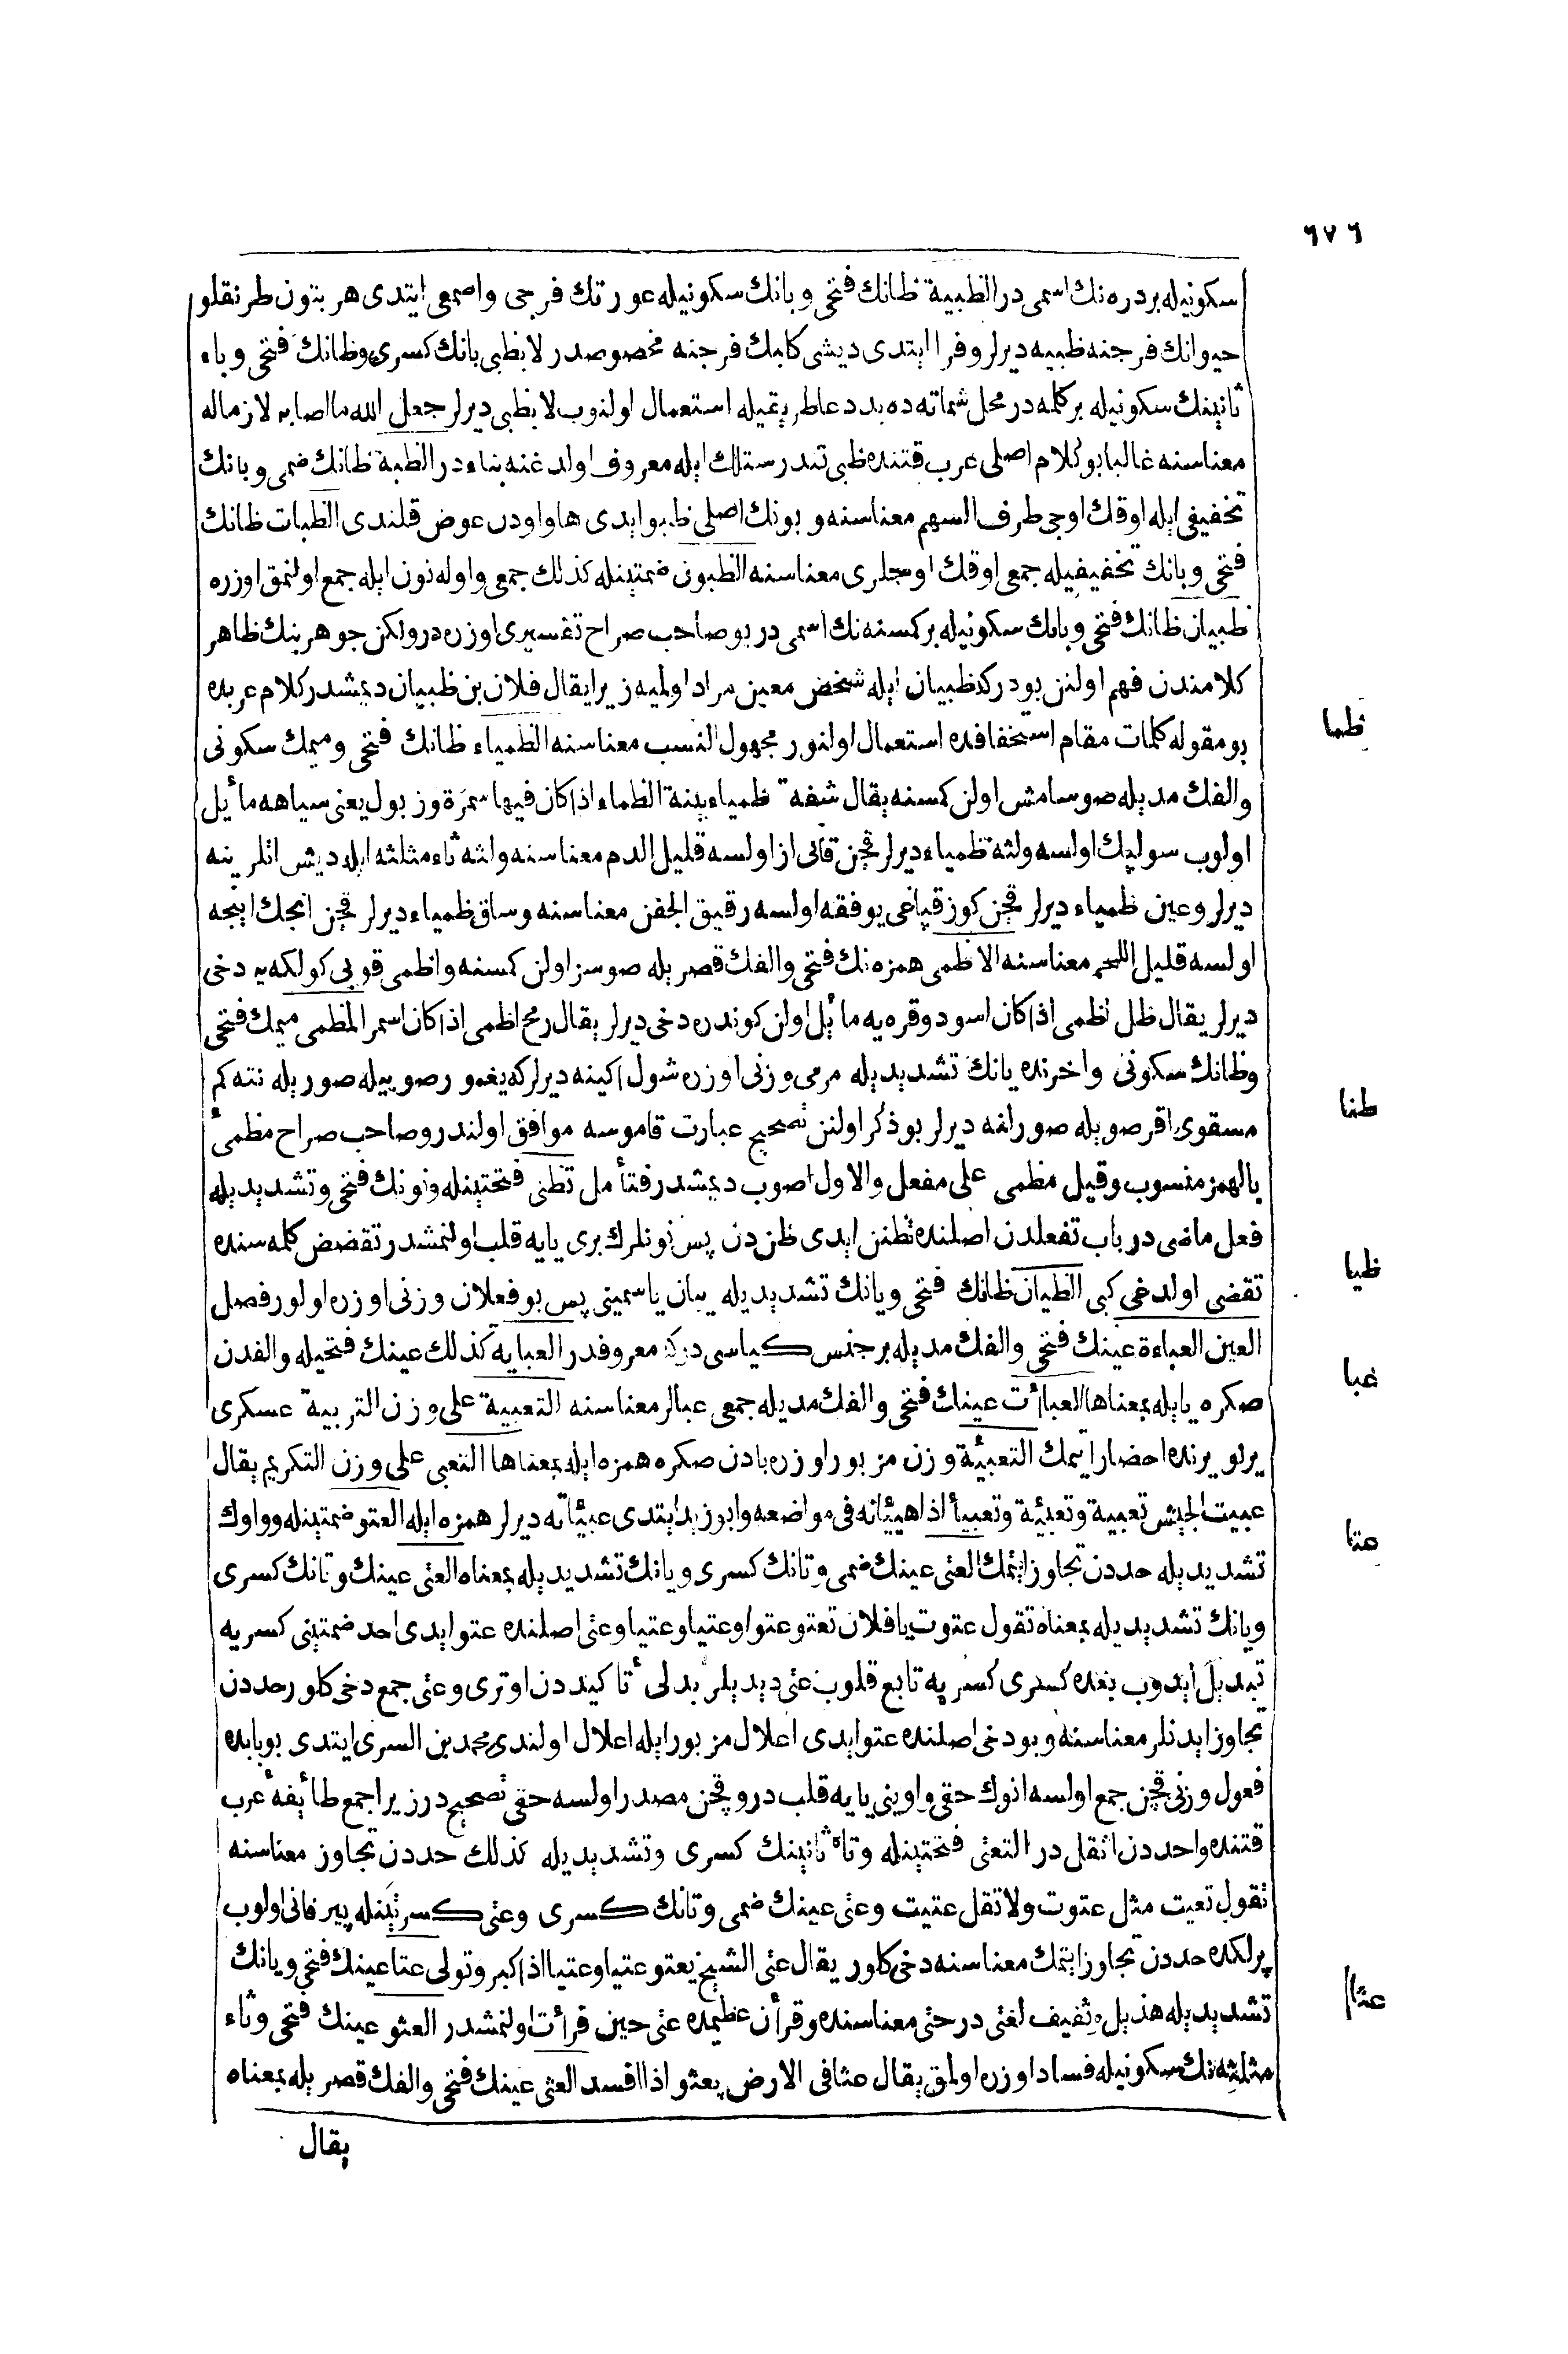 ٦٧٦
سكونيله بر دره نك اسمى در الظبية ظانك فتحى و بانك سكونيله عورتك فرجى واصمعى ايتدى هر بتون طرنقلو
حيوانك فرجنه ظبيه ديرلر وفرا ايتدى ديشى كلبك فرجنه مخصوصدر لا بظبى بانك كسرى وظانك فتحى و باء
ثانينك سكونيله بر كلمه در محل شماته ده بد دعا طريقيله استعمال اولنوب لا بظبى ديرلر جعل الله ما اصابه لازماله
معناسنه غالبا بو كلام اصلى عرب قتنده ظبى تندرستلك ايله معروف اولدغنه بناء در الظبة ظانك ضمى و بانك
تخفيفى ايله اوقك اوجى طرف السهم معناسنه و بونك اصلى ظبو ايدى ها واودن عوض قلندى الظبات ظانك
فتحى و بانك تخفيفيله جمعى اوقك اوجلرى معناسنه الظبون ضمتينله كذلك جمعى واوله نون ايله جمع اولنمق اوزره
ظبيان ظانك فتحى و بانك سكونيله بر كمسنه نك اسمى در بو صاحب صراح تفسيرى اوزره در ولكن جوهرينك ظاهر
كلامندن فهم اولنن بودر كه ظبيان ايله شخض معين مراد اولميه زيرا يقال فلان بن ظبيان ديمشدر كلام عربده
بو مقوله كلمات مقام استخفافده استعمال اولنور مجهول النسب معناسنه الظمياء ظانك فتحى و ميمك سكونى
ظما
والفك مديله صوسامش اولن كمسنه يقال شفة ظمياء بينة الظماء اذا كان فيها سمرة وزبول يعنى سياهه مأيل
اولوب سولپك اولسه ولثة ظمياء ديرلر قچن قانى از اولسه قليل الدم معناسنه ولثه ثاء مثلثه ايله ديش اتلرينه
ديرلر وعين ظمياء ديرلر قچن كوز قپاغى يوفقه اولسه رقيق الجفن معناسنه وساق ظمياء ديرلر قچن انجك اينجه
اولسه قليل اللحم معناسنه الاظمى همزه نك فتحى والفك قصر يله صوسز اولن كمسنه واظمى قويى كولكه يه دخى
ديرلر يقال ظل اظمى اذا كان اسود وقره يه مائل اولن كوندره دخى ديرلر يقال رمح اظمى اذا كان اسمر المظمى ميمك فتحى
وظانك سكونى واخرنده يانك تشديديله مرمى وزنى اوزره شول اكينه ديرلر كه يغمور صوييله صوريله نته كم
مسقوى اقر صويله صورلغه ديرلر بو ذكر اولنن تصحيح عبارت قاموسه موافق اولندر وصاحب صراح مظمىء
طنا
بالهمز منسوب وقيل مظمى على مفعل والاول اصوب ديمشدر فتأمل تظنى فتحتينله ونونك فتحى وتشديديله
فعل ماضى در باب تفعلدن اصلنده تظنن ايدى ظن دن پس نونلرك برى يايه قلب اولنمشدر تقضض كلمه سنده
تقضى اولدخى كبى الظيان ظانك فتحى ويانك تشديديله يبان ياسمينى پس بو فعلان وزنى اوزره اولور فصل
ظيا
العين العباءة عينك فتحى والفك مديله بر جنس كياسى در كه معروفدر العباية كذلك عينك فتحيله والفدن
صكره يا يله بمعناها العباآت عينك فتحى والفك مديله جمعى عبالر معناسنه التعبية على وزن التربية عسكرى
عبا
يرلو يرنده احضار ايتمك التعبئة وزن مزبور اوزره بادن صكره همزه ايله بمعناها التعبى على وزن التكريم يقال
عبيت الجيش تعبية وتعبئة وتعبيأ اذا هيئاته فى مواضعه وابو زيد ايتدى عبئاته ديرلر همزه ايله العتو ضمتينله وواوك
عتا
تشديديله حددن تجاوز ايتمك العتى عينك ضمى وتانك كسرى ويانك تشديديله بمعناه العتى عينك وتانك كسرى
ويانك تشديديله بمعناه تقول عتوت يا فلان تعتو عتوا وعتيا وعتيا وعتى اصلنده عتو ايدى احد ضمتينى كسريه
تبديل ايدوب بغده كسرى كسريه تابع قلوب عتى ديديلر بدلى تاكيددن اوترى وعتى جمع دخى كلور حددن
تجاوز ايدنلر معناسنه و بو دخى اصلنده عتو ايدى اعلال مزبور ايله اعلال اولندى محمد بن السرى ايتدى بو بابده
فعول وزنى قچن جمع اولسه انوك حقى واوينى يايه قلب در و قچن مصدر اولسه حقى تصحيح در زيرا جمع طائفهٔ عرب
قتنده واحددن اثقل در التعتى فتحتينله وتاء ثانينك كسرى وتشديديله كذلك حددن تجاوز معناسنه
تقول تعيت مثل عتوت ولا تقل عتيت وعتى عينك ضمى وتانك كسرى وعتى كسرتينله پير فانى اولوب
پرلكده حددن تجاوز ايتمك معناسنه دخى كلور يقال عتى الشيخ يعتو عتيا وعتيا اذا كبر وتولى عتا عينك فتحى ويانك
تشديديله هذيل وثقيف لغتى در حتى معناسنده وقرأن عظيمده عتى حين قرأت اولنمشدر العثو عينك فتحى وثاء
عثا
مثلثه نك سكونيله فساد اوزره اولمق يقال عثا فى الارض يعثو اذا افسد العثى عينك فتحى والفك قصر يله بمعناه
يقال